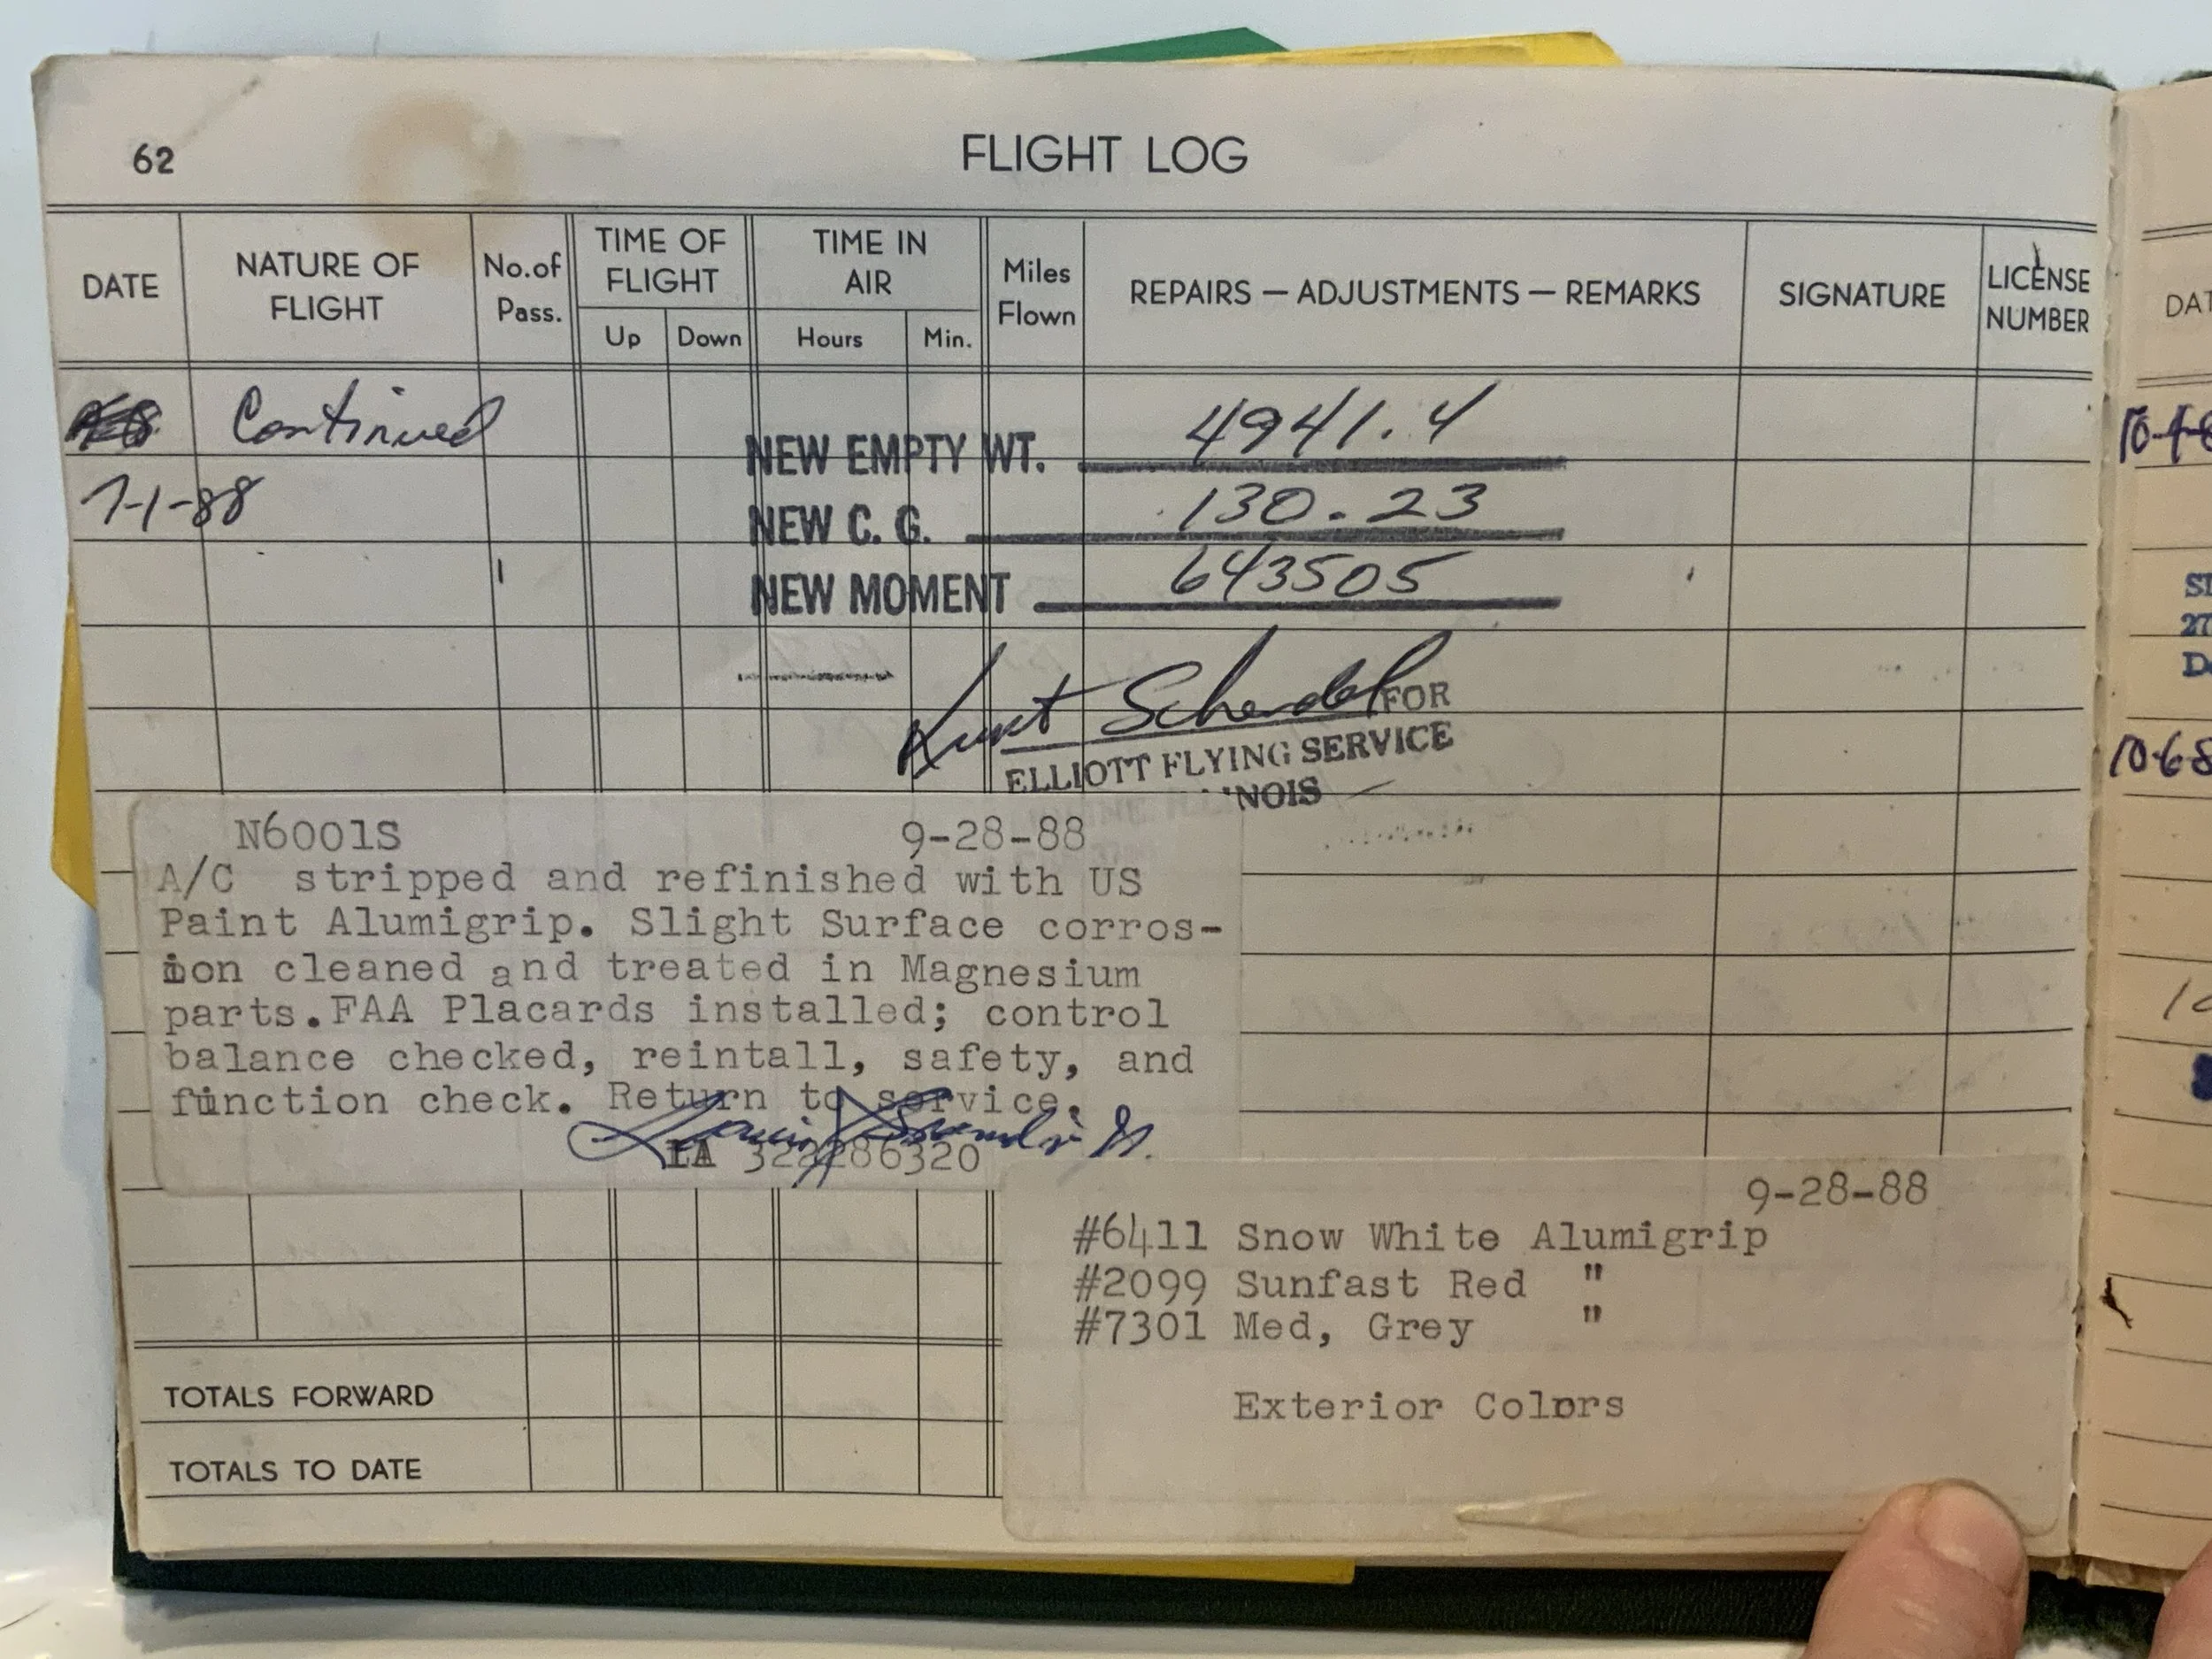 62
FLIGHT LOG
DATE NATURE OF FLIGHT No. of Pass. TIME OF FLIGHT TIME IN AIR Miles Flown REPAIRS — ADJUSTMENTS — REMARKS SIGNATURE LICENSE NUMBER
Up Down Hours Min.
Continued
NEW EMPTY WT. 4941.4
7-1-88
NEW C. G. 130.23
NEW MOMENT 643505
Kurt Schendel FOR
ELLIOTT FLYING SERVICE
N6001S 9-28-88
A/C stripped and refinished with US
Paint Alumigrip. Slight Surface corros-
ion cleaned and treated in Magnesium
parts.FAA Placards installed; control
balance checked, reintall, safety, and
function check. Return to service.
IA 322286320
9-28-88
#6411 Snow White Alumigrip
#2099 Sunfast Red "
#7301 Med, Grey "
Exterior Colors
TOTALS FORWARD
TOTALS TO DATE